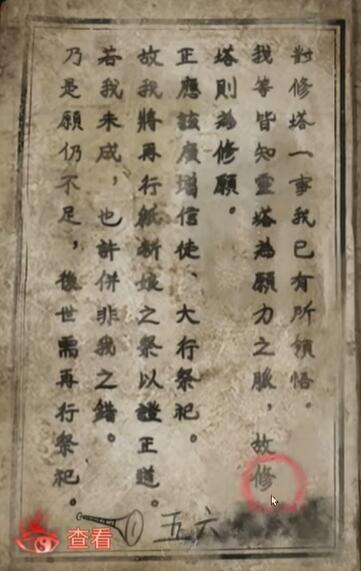 對修塔一事我已有所領悟。
我等皆知靈塔為願力之脈,故修
塔則為修願。
正應該廣增信徒、大行祭祀。
故我將再行紙新娘之祭以證正道。
若我未成,也許併非我之錯。
乃是願仍不足,後世需再行祭祀。
五六
查看